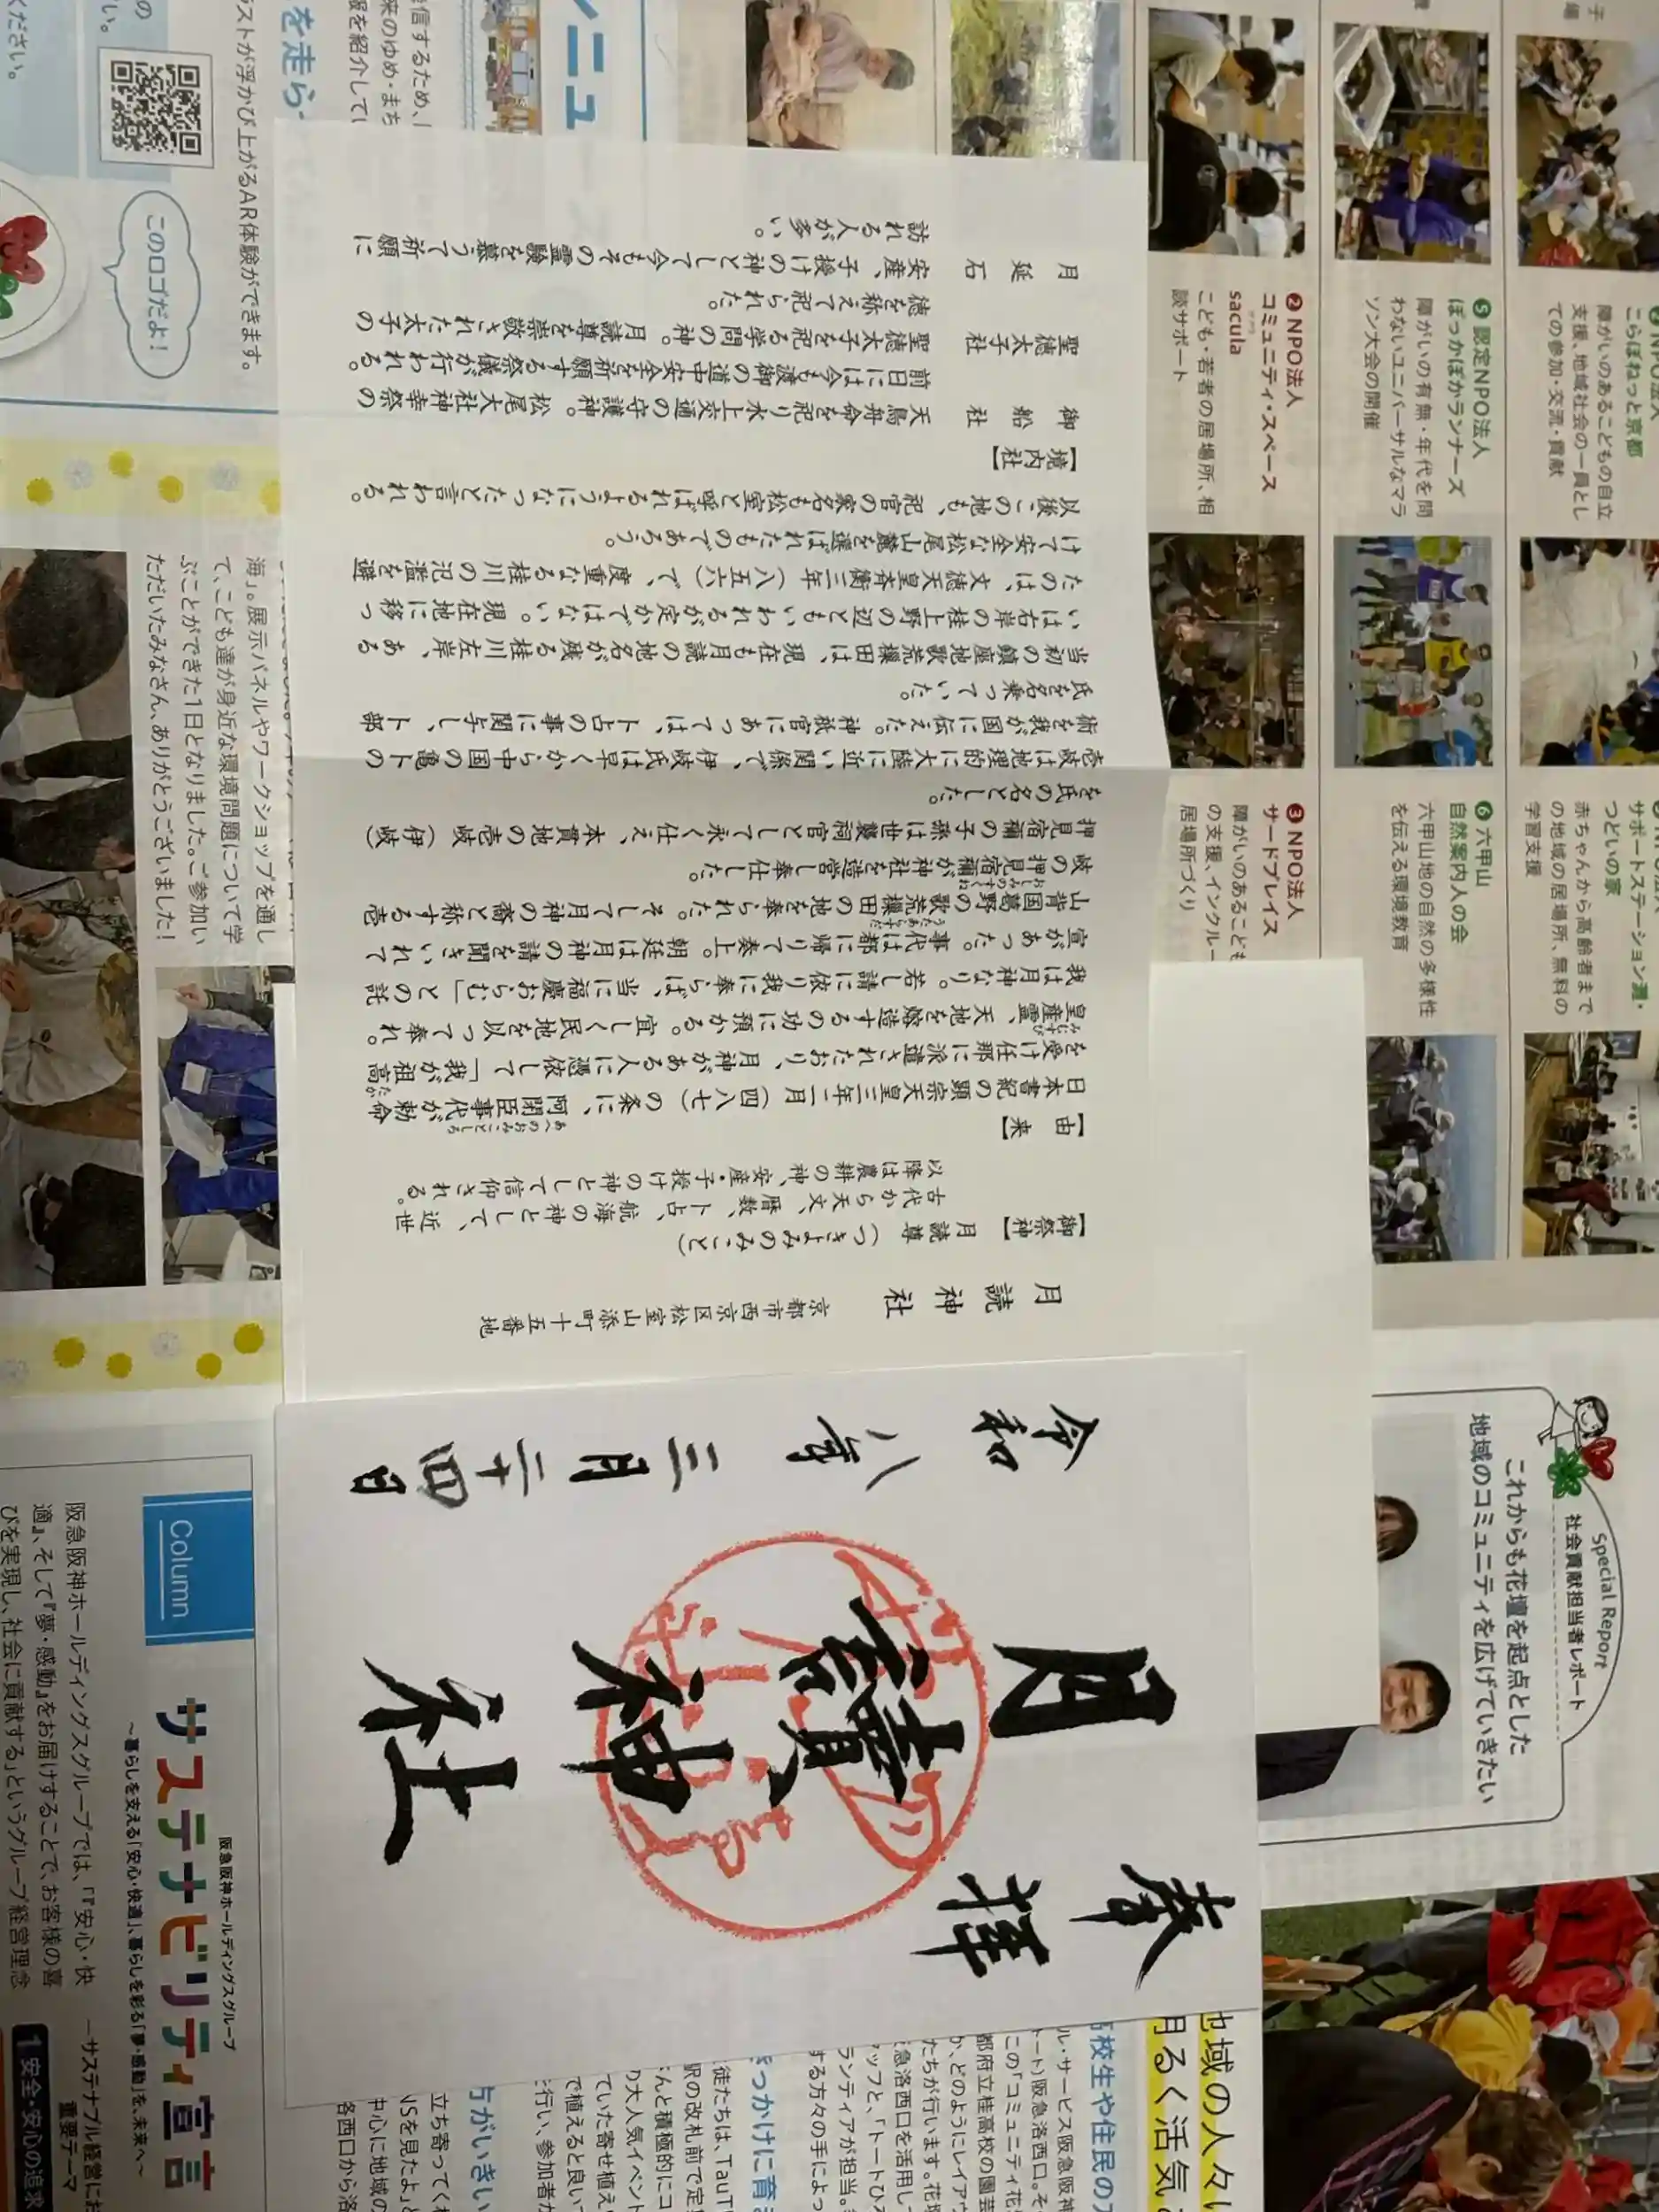 月読神社　京都市西京区松室山添町十五番地
【御祭神】月読尊（つきよみのみこと）
古代から天文、暦数、卜占、航海の神として、近世
以降は農耕の神、安産・子授けの神として信仰される。
【由来】
日本書紀の顕宗天皇三年二月（四八七）の条に、阿閉臣事代が勅命
を受け任那に派遣されたおり、月神がある人に憑依して「我が祖高
皇産霊、天地を鎔造するの功に預かる。宜しく民地を以って奉れ。
我は月神なり。若し請に依り我に奉らば、当に福慶おらむ」との託
宣があった。事代は都に帰りて奏上。朝廷は月神の請を聞きいれて
山背国葛野の歌荒樔田の地を奉られた。そして月神の裔と称する壱
岐の押見宿禰が神社を造営し奉仕した。
押見宿禰の子孫は世襲祠官として永く仕え、本貫地の壱岐（伊岐）
を氏の名とした。
壱岐は地理的に大陸に近い関係で、伊岐氏は早くから中国の亀卜の
術を我が国に伝えた。神祇官にあっては、卜占の事に関与し、卜部
氏を名乗っていた。
当初の鎮座地歌荒樔田は、現在も月読の地名が残る桂川左岸、ある
いは右岸の桂上野の辺ともいわれるが定かではない。現在地に移っ
たのは、文徳天皇斉衡三年（八五六）で、度重なる桂川の氾濫を避
けて安全な松尾山麓を選ばれたものであろう。
以後この地も、祀官の家名も松室と呼ばれるようになったと言われる。
【境内社】
御船社　天鳥舟命を祀り水上交通の守護神。松尾大社神幸祭の
前日には今も渡御の道中安全を祈願する祭儀が行われる。
聖徳太子社　聖徳太子を祀る学問の神。月読尊を崇敬された太子の
徳を称えて祀られた。
月延石　安産、子授けの神として今もその霊験を慕って祈願に
訪れる人が多い。
奉拝
月讀神社
令和八年三月二十四日
を走ら
ラストが浮かび上がるAR体験ができます。
このロゴだよ！
ください。
海」。展示パネルやワークショップを通し
て、こども達が身近な環境問題について学
ぶことができた1日となりました。ご参加い
ただいたみなさん、ありがとうございました！
❷ NPO法人
コミュニティ・スペース
sacula
こども・若者の居場所、相
談サポート
❸ NPO法人
サードプレイス
障がいのあるこども
の支援、インクルー
居場所づくり
❺ 認定NPO法人
ぽっかぽかランナーズ
障がいの有無・年代を問
わないユニバーサルなマラ
ソン大会の開催
❻ 六甲山
自然案内人の会
六甲山地の自然の多様性
を伝える環境教育
こらぼねっと京都
障がいのあるこどもの自立
支援、地域社会の一員とし
ての参加・交流・貢献
サポートステーション灘・
つどいの家
赤ちゃんから高齢者まで
の地域の居場所、無料の
学習支援
Special Report
社会貢献担当者レポート
これからも花壇を起点とした
地域のコミュニティを広げていきたい
Column
阪急阪神ホールディングスグループ
サステナビリティ宣言
～暮らしを支える「安心・快適」、暮らしを彩る「夢・感動」を、未来へ～
阪急阪神ホールディングスグループでは、「『安心・快
適』、そして『夢・感動』をお届けすることで、お客様の喜
びを実現し、社会に貢献する」というグループ経営理念
重要テーマ
1 安全・安心の追求